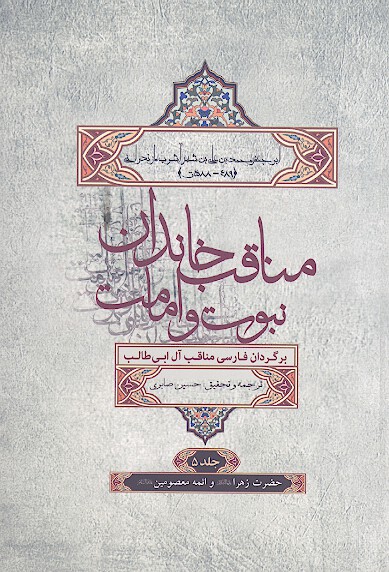 ابی‌جعفر محمد بن علی بن شهرآشوب مازندرانی
(۴۸۹ – ۵۸۸ ق)
مناقب خاندان
نبوت و امامت
برگردان فارسی مناقب آل ابی‌طالب
ترجمه و تحقیق: حسین صابری
جلد ۵
حضرت زهرا و ائمه معصومین